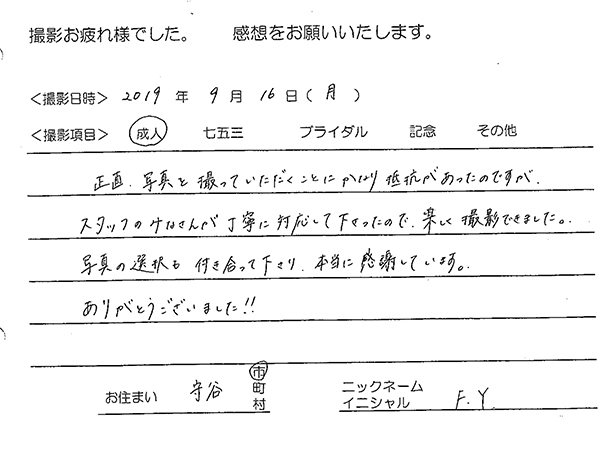 撮影お疲れ様でした。 感想をお願いいたします。
＜撮影日時＞ 2019 年 9 月 16 日（月）
＜撮影項目＞ 成人 七五三 ブライダル 記念 その他
正直、写真を撮っていただくことにかなり抵抗があったのですが、
スタッフのみなさんが丁寧に対応して下さったので、楽しく撮影できました。
写真の選択も付き合って下さり、本当に感謝しています。
ありがとうございました!!
お住まい 守谷 市町村 ニックネーム イニシャル F.Y